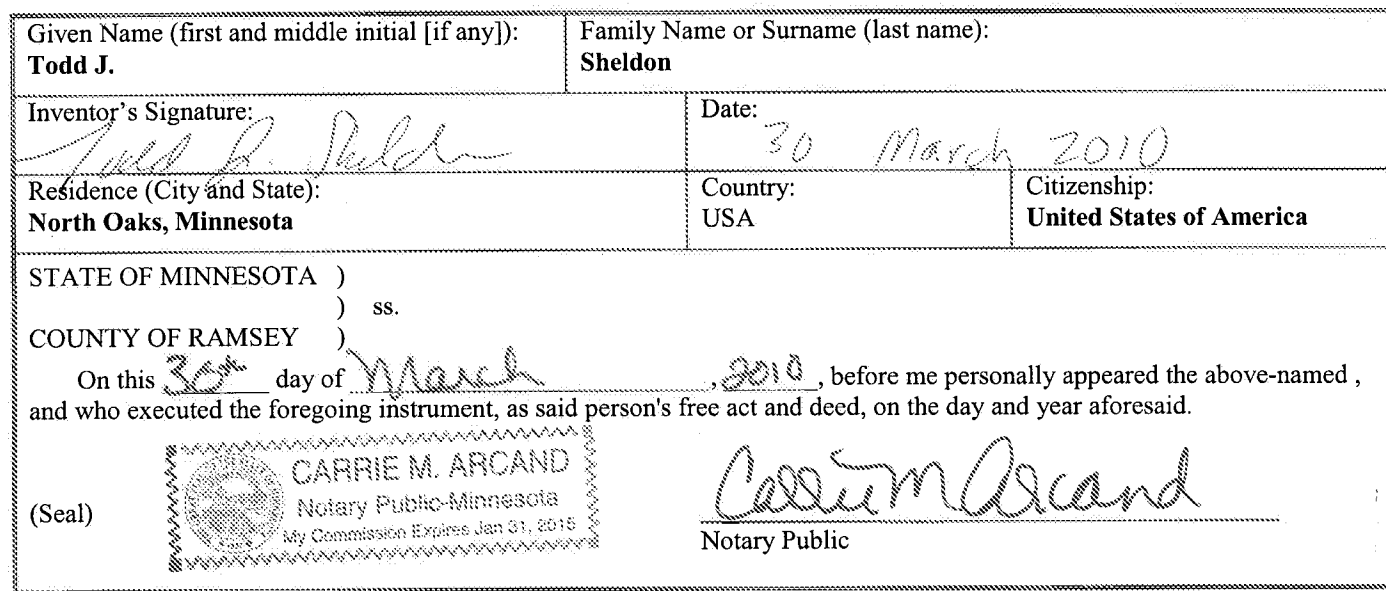 Given Name (first and middle initial [if any]): Family Name or Surname (last name):
Todd J. Sheldon
Inventor's Signature: Date:
Todd J. Sheldon 30 March 2010
Residence (City and State): Country: Citizenship:
North Oaks, Minnesota USA United States of America
STATE OF MINNESOTA )
) ss.
COUNTY OF RAMSEY )
On this 30th day of March, 2010, before me personally appeared the above-named ,
and who executed the foregoing instrument, as said person's free act and deed, on the day and year aforesaid.
CARRIE M. ARCAND
Notary Public-Minnesota
My Commission Expires Jan 31, 2015
(Seal) Carrie M Arcand
Notary Public